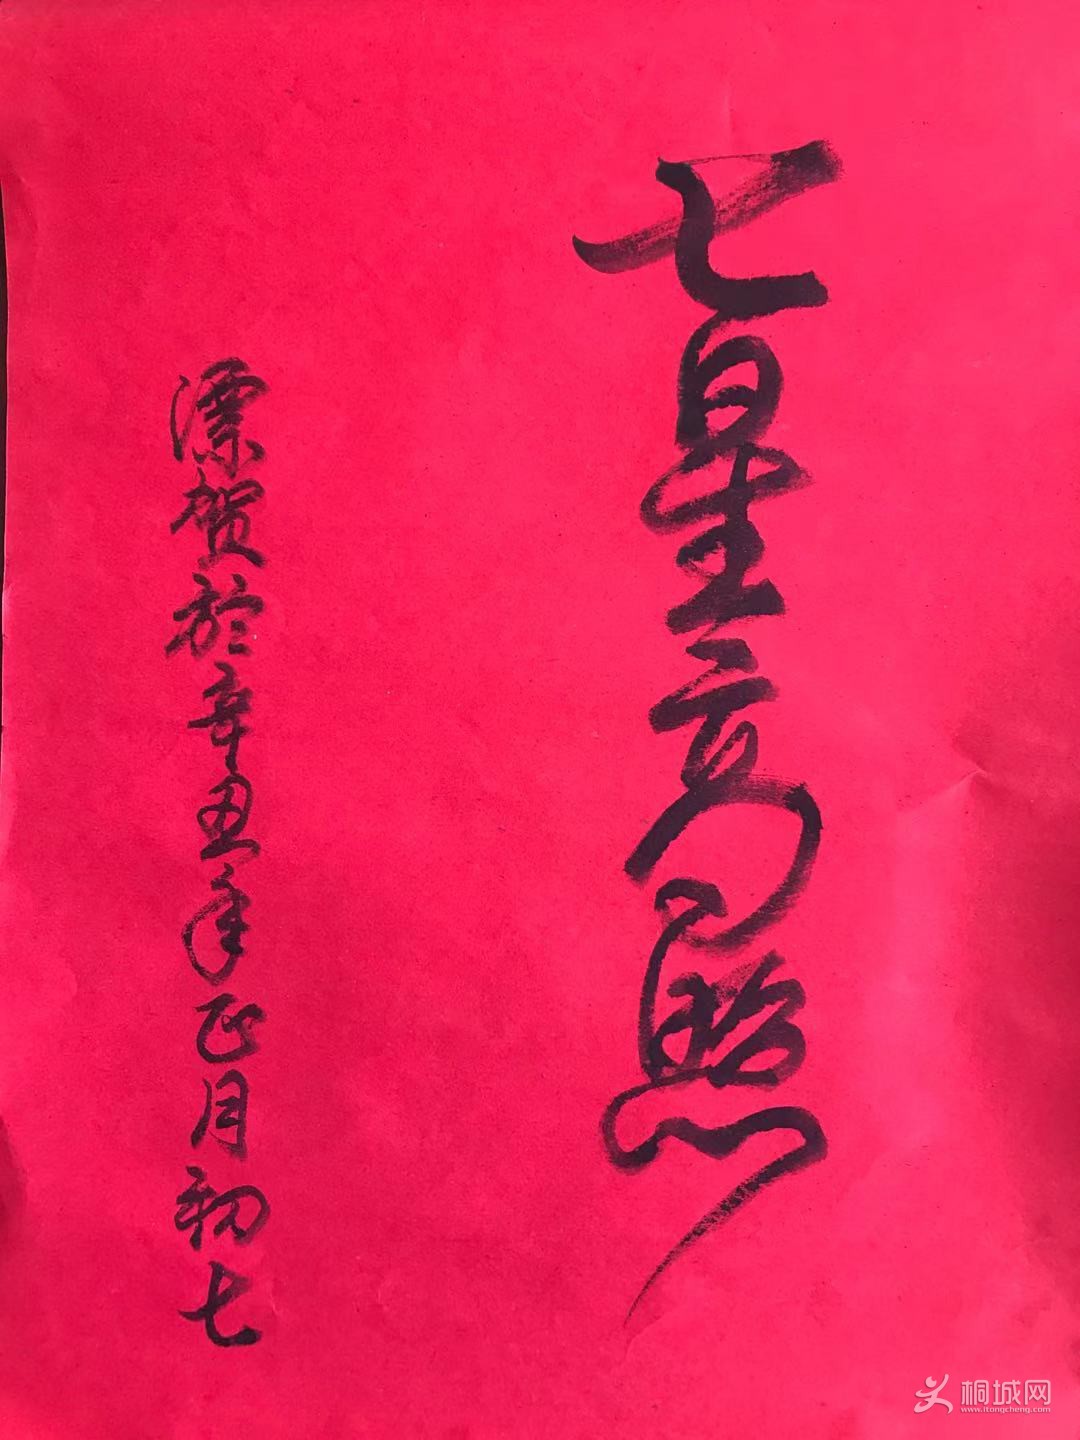 七星高照
漂贺於辛丑年正月初七
桐城网
www.itongcheng.com